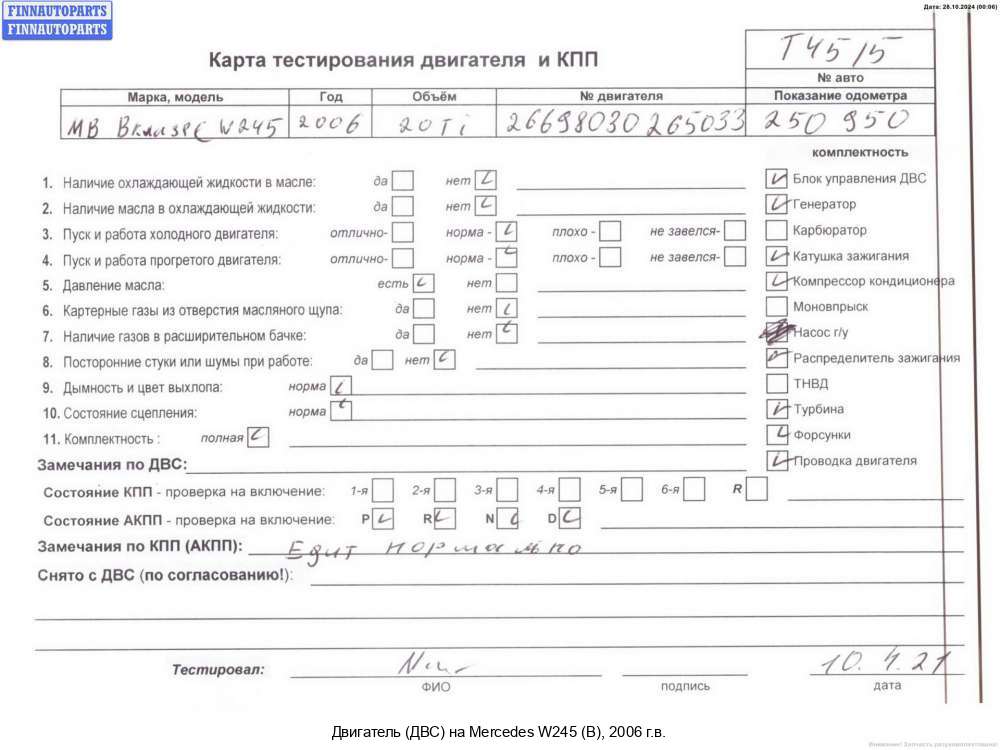 FINNAUTOPARTS
FINNAUTOPARTS
Дата: 26.10.2024 (00:06)
Карта тестирования двигателя и КПП
T45/5
№ авто
Марка, модель Год Объём № двигателя Показание одометра
МВ Вклизрс W245 2006 20Ti 26698030265033 250 950
комплектность
1. Наличие охлаждающей жидкости в масле: да нет Блок управления ДВС
2. Наличие масла в охлаждающей жидкости: да нет Генератор
3. Пуск и работа холодного двигателя: отлично- норма - плохо - не завелся- Карбюратор
4. Пуск и работа прогретого двигателя: отлично- норма - плохо - не завелся- Катушка зажигания
5. Давление масла: есть нет Компрессор кондиционера
6. Картерные газы из отверстия масляного щупа: да нет Моновпрыск
7. Наличие газов в расширительном бачке: да нет Насос г/у
8. Посторонние стуки или шумы при работе: да нет Распределитель зажигания
9. Дымность и цвет выхлопа: норма ТНВД
10. Состояние сцепления: норма Турбина
11. Комплектность : полная Форсунки
Замечания по ДВС: Проводка двигателя
Состояние КПП - проверка на включение: 1-я 2-я 3-я 4-я 5-я 6-я R
Состояние АКПП - проверка на включение: P R N D
Замечания по КПП (АКПП): Едит нормально
Снято с ДВС (по согласованию!):
Тестировал: 10.4.21
ФИО подпись дата
Двигатель (ДВС) на Mercedes W245 (B), 2006 г.в.
Внимание! Запчасть разукомплектована!